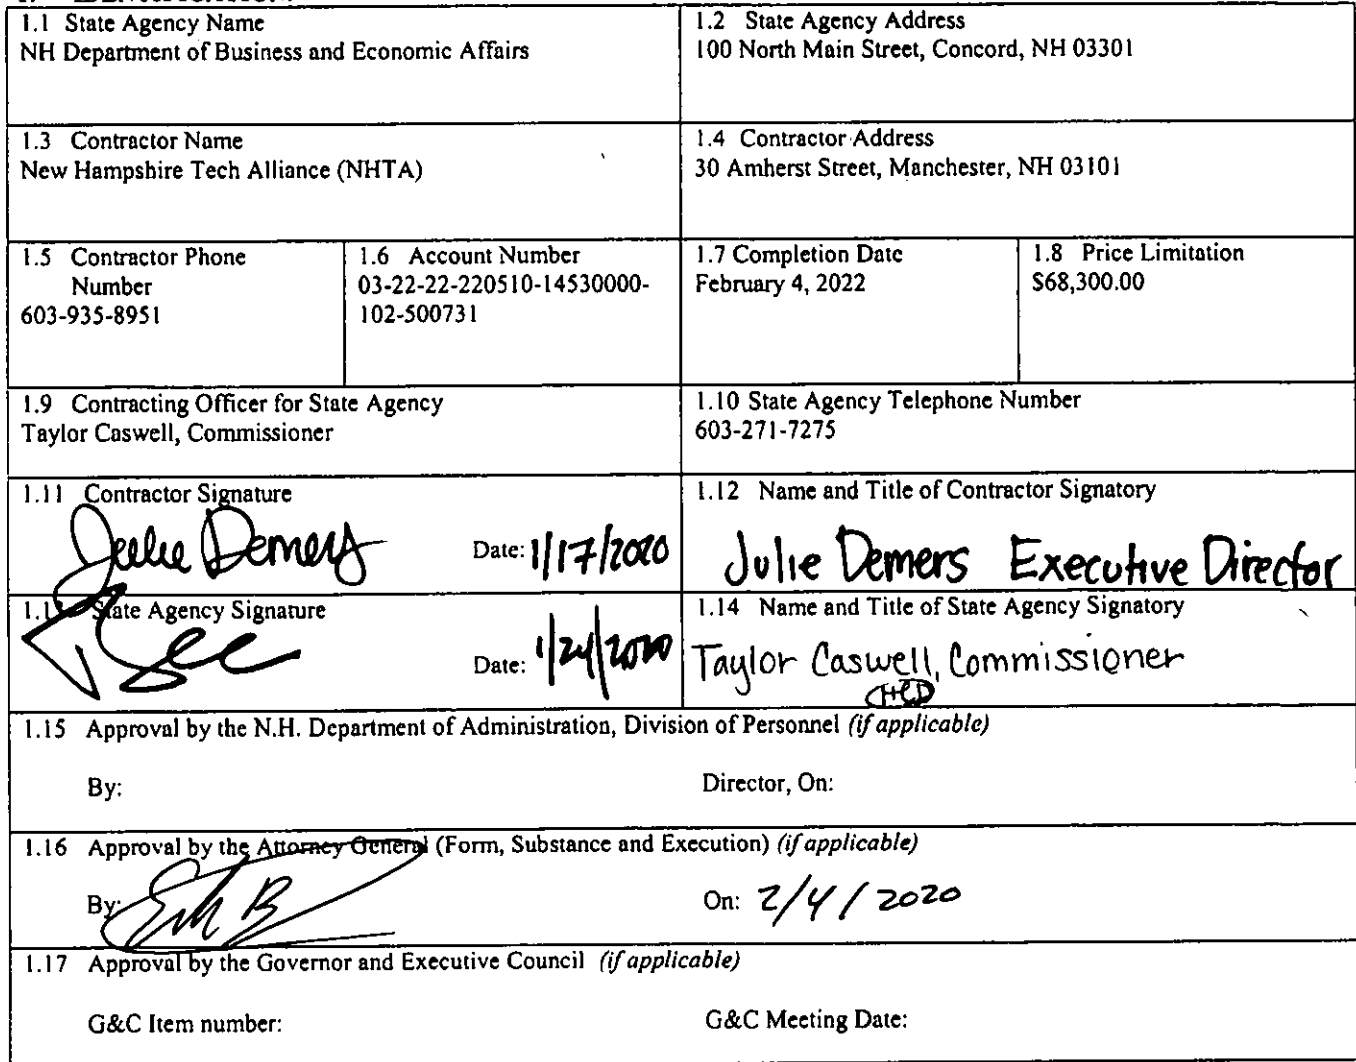 1.1 State Agency Name
NH Department of Business and Economic Affairs
1.2 State Agency Address
100 North Main Street, Concord, NH 03301
1.3 Contractor Name
New Hampshire Tech Alliance (NHTA)
1.4 Contractor Address
30 Amherst Street, Manchester, NH 03101
1.5 Contractor Phone
Number
603-935-8951
1.6 Account Number
03-22-22-220510-14530000-
102-500731
1.7 Completion Date
February 4, 2022
1.8 Price Limitation
$68,300.00
1.9 Contracting Officer for State Agency
Taylor Caswell, Commissioner
1.10 State Agency Telephone Number
603-271-7275
1.11 Contractor Signature
Julie Demers Date: 1/17/2020
1.12 Name and Title of Contractor Signatory
Julie Demers Executive Director
State Agency Signature
Date: 1/24/2020
1.14 Name and Title of State Agency Signatory
Taylor Caswell, Commissioner
1.15 Approval by the N.H. Department of Administration, Division of Personnel (if applicable)
By: Director, On:
1.16 Approval by the Attorney General (Form, Substance and Execution) (if applicable)
By: On: 2/4/2020
1.17 Approval by the Governor and Executive Council (if applicable)
G&C Item number: G&C Meeting Date: